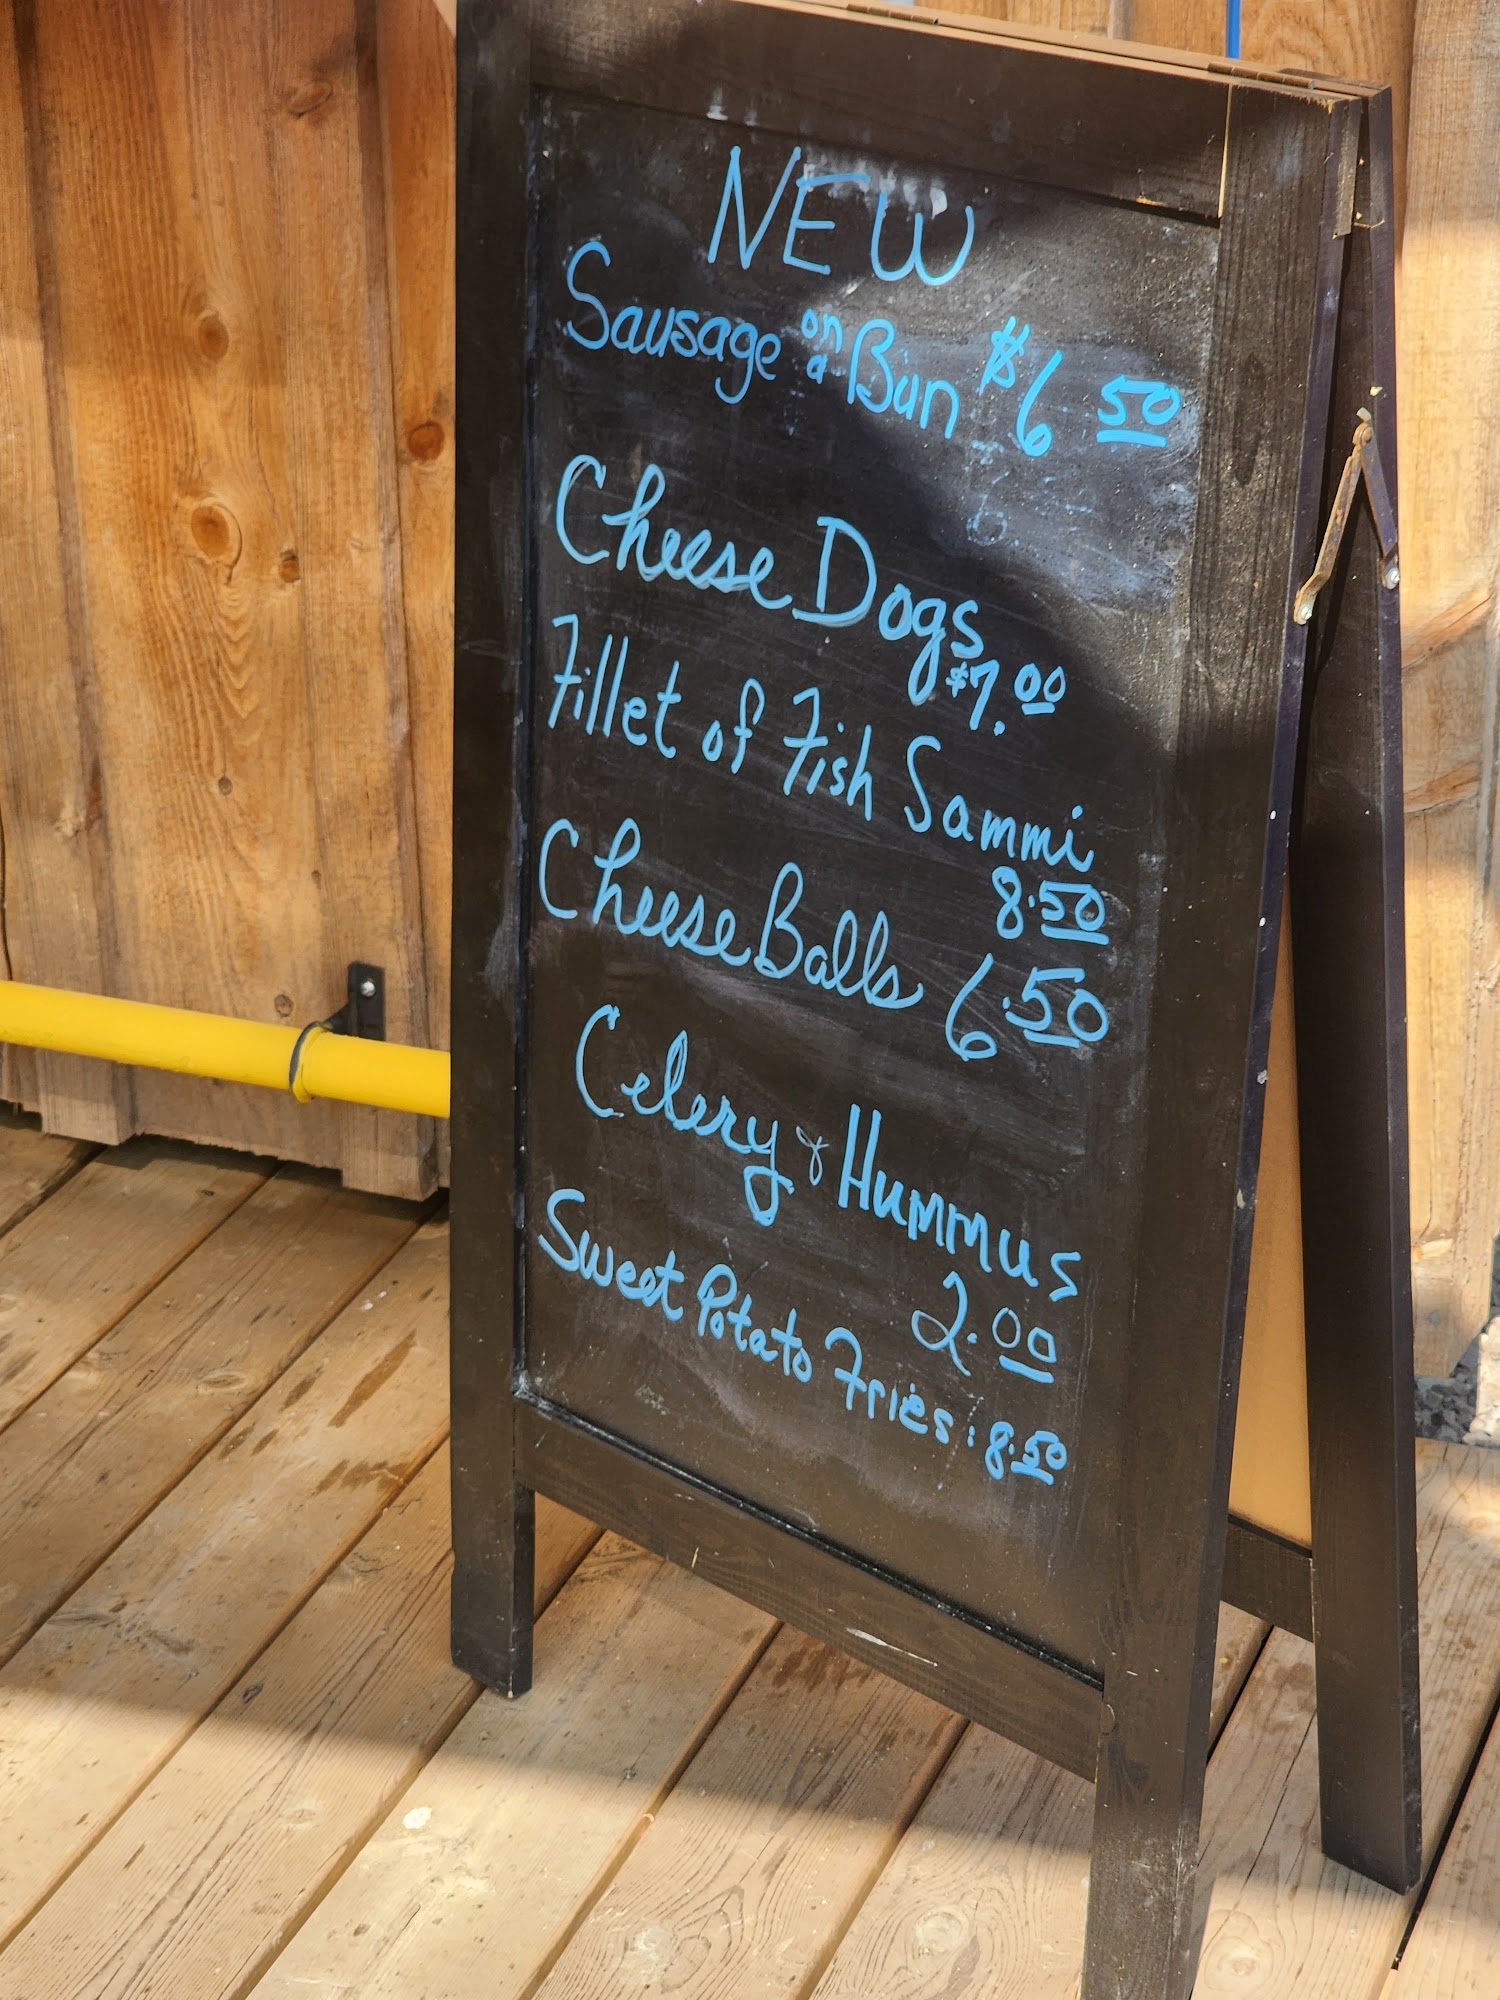 NEW
Sausage on a Bun $6 50
Cheese Dogs
$7.00
Fillet of Fish Sammi
8.50
Cheese Balls 6.50
Celery & Hummus
2.00
Sweet Potato Fries: 8.50